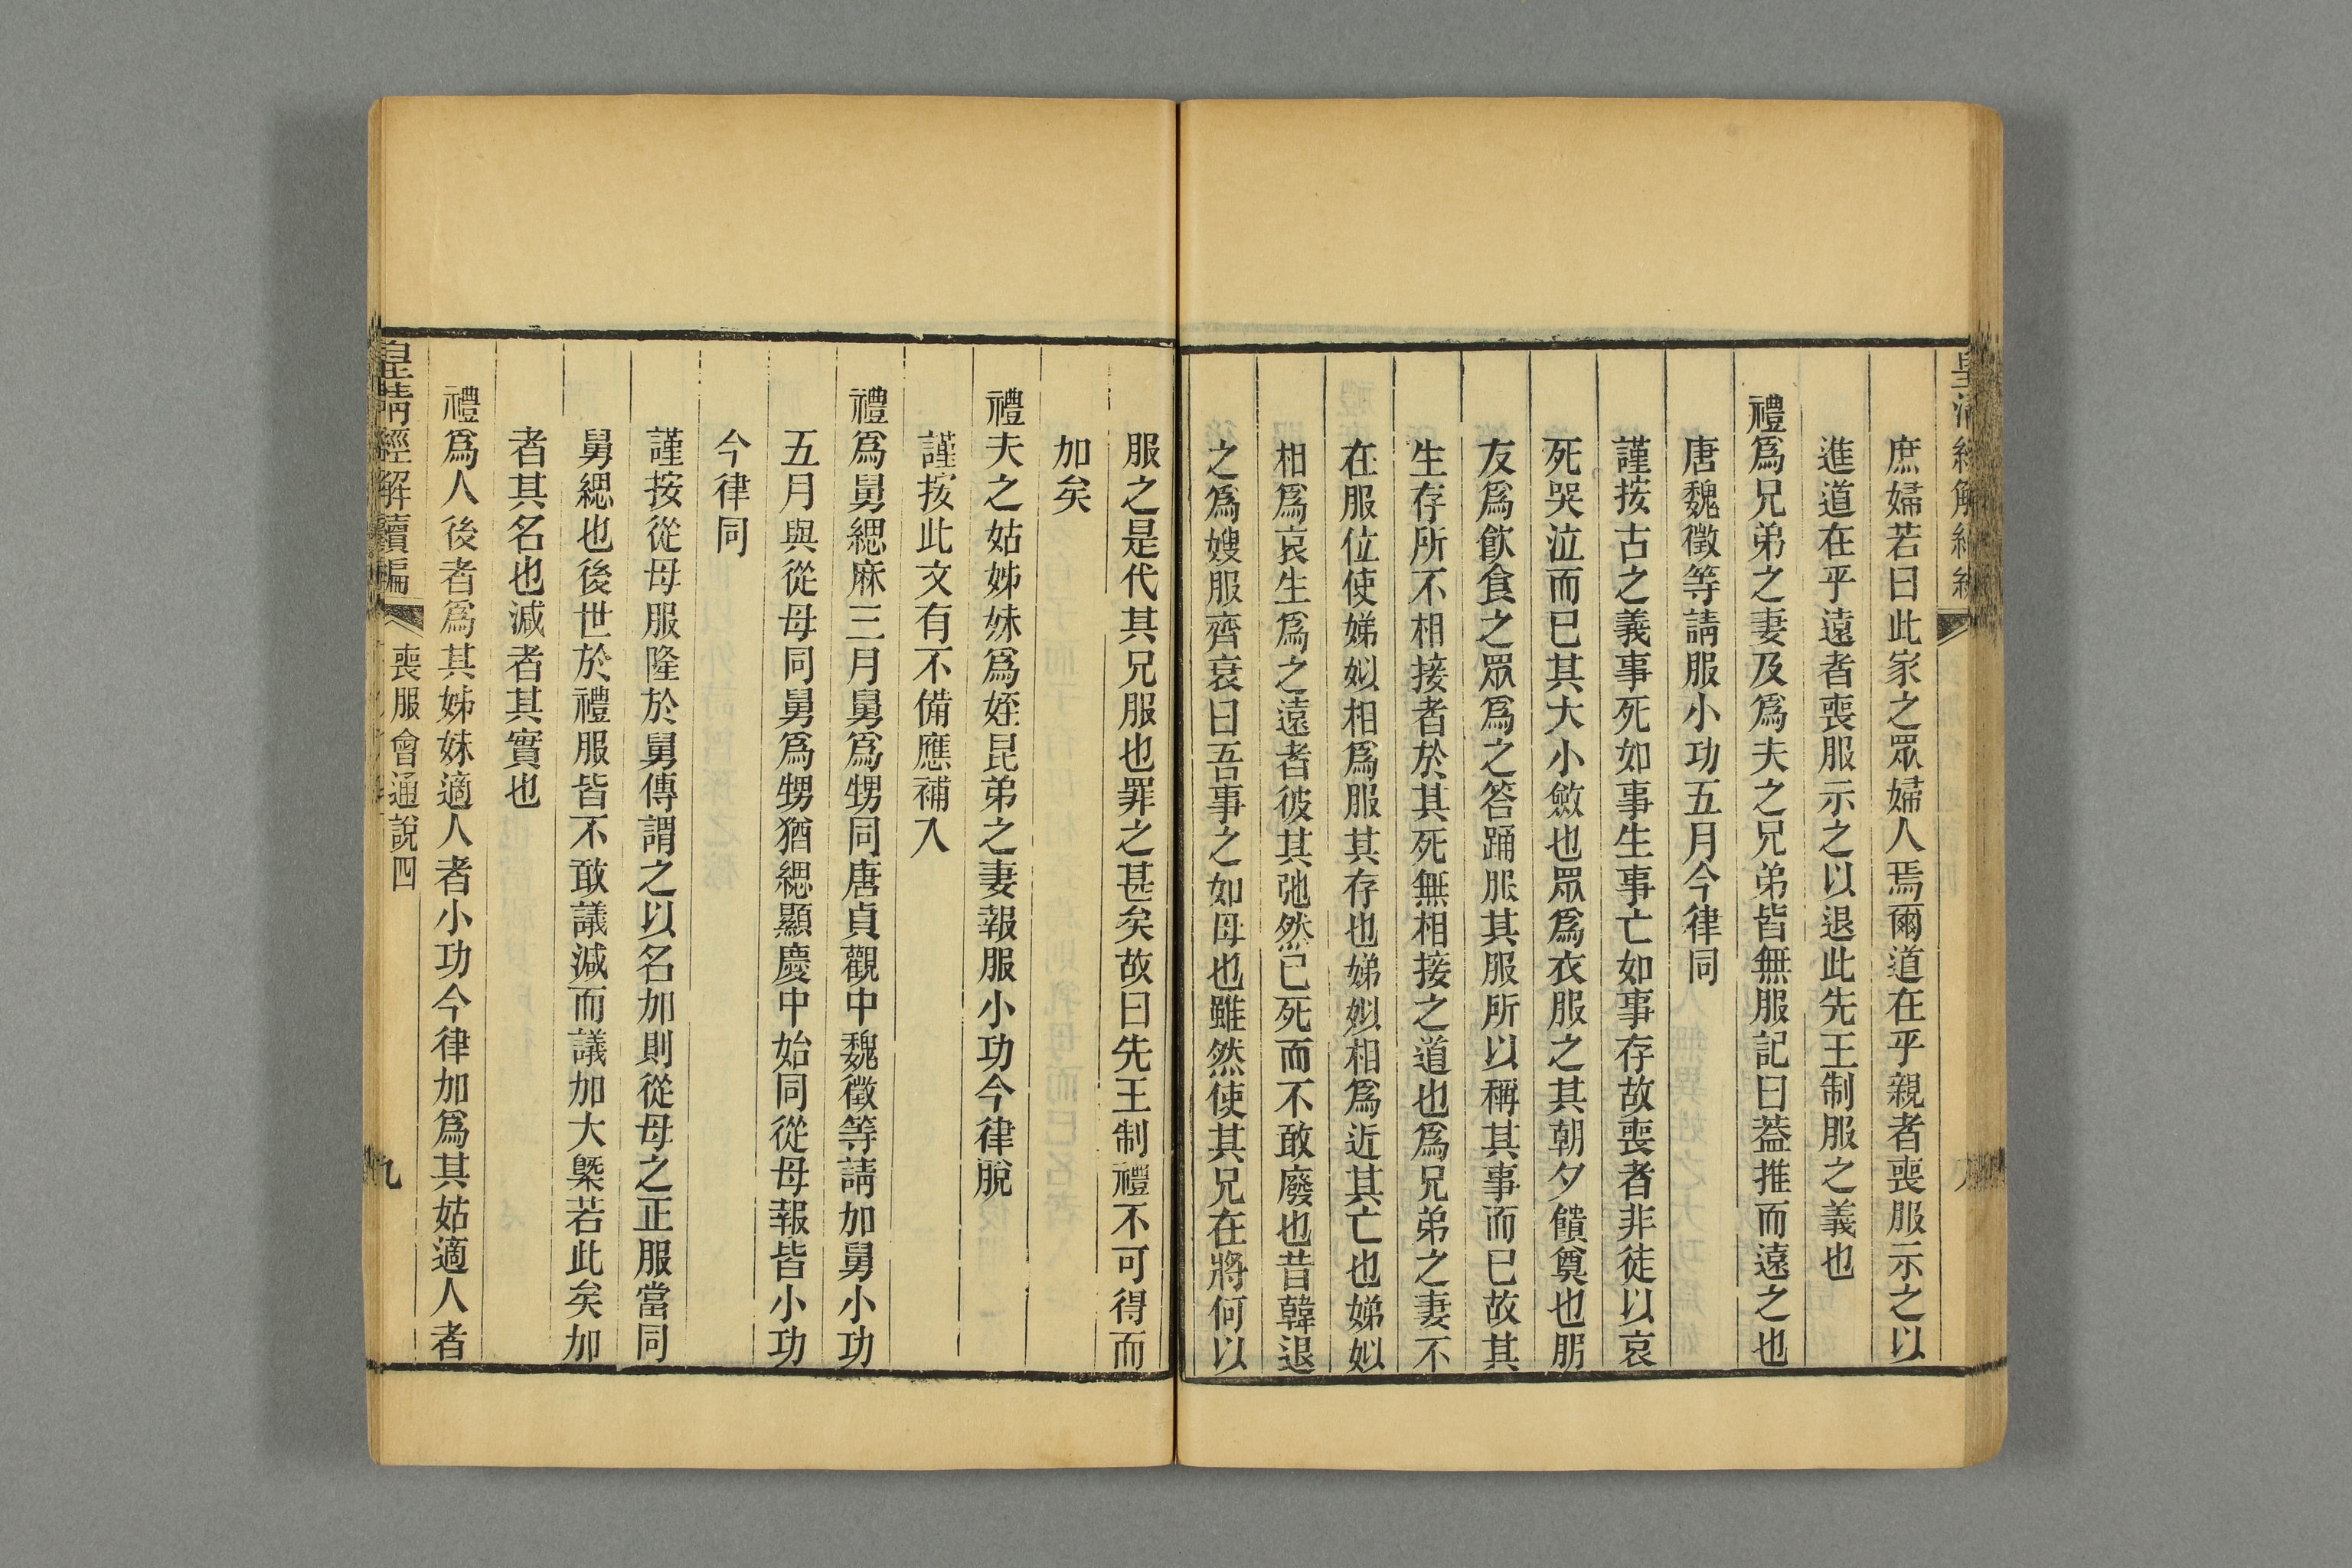 庶婦若曰此家之眾婦人焉爾道在乎親者喪服示之以
進道在乎遠者喪服示之以退此先王制服之義也
禮爲兄弟之妻及爲夫之兄弟皆無服記曰葢推而遠之也
唐魏徵等請服小功五月今律同
謹按古之義事死如事生事亡如事存故喪者非徒以哀
死哭泣而已其大小斂也眾爲衣服之其朝夕饋奠也朋
友爲飮食之眾爲之答踊服其服所以稱其事而已故其
生存所不相接者於其死無相接之道也爲兄弟之妻不
在服位使娣姒相爲服其存也娣姒相爲近其亡也娣姒
相爲哀生爲之遠者彼其弛然已死而不敢廢也昔韓退
之爲嫂服齊衰曰吾事之如母也雖然使其兄在將何以
服之是代其兄服也罪之甚矣故曰先王制禮不可得而
加矣
禮夫之姑姊妹爲姪昆弟之妻報服小功今律脫
謹按此文有不備應補入
禮爲舅緦麻三月舅爲甥同唐貞觀中魏徵等請加舅小功
五月與從母同舅爲甥猶緦顯慶中始同從母報皆小功
今律同
謹按從母服隆於舅傳謂之以名加則從母之正服當同
舅緦也後世於禮服皆不敢議減而議加大槩若此矣加
者其名也減者其實也
禮爲人後者爲其姊妹適人者小功今律加爲其姑適人者
皇淸經解續編 喪服會通說四 九